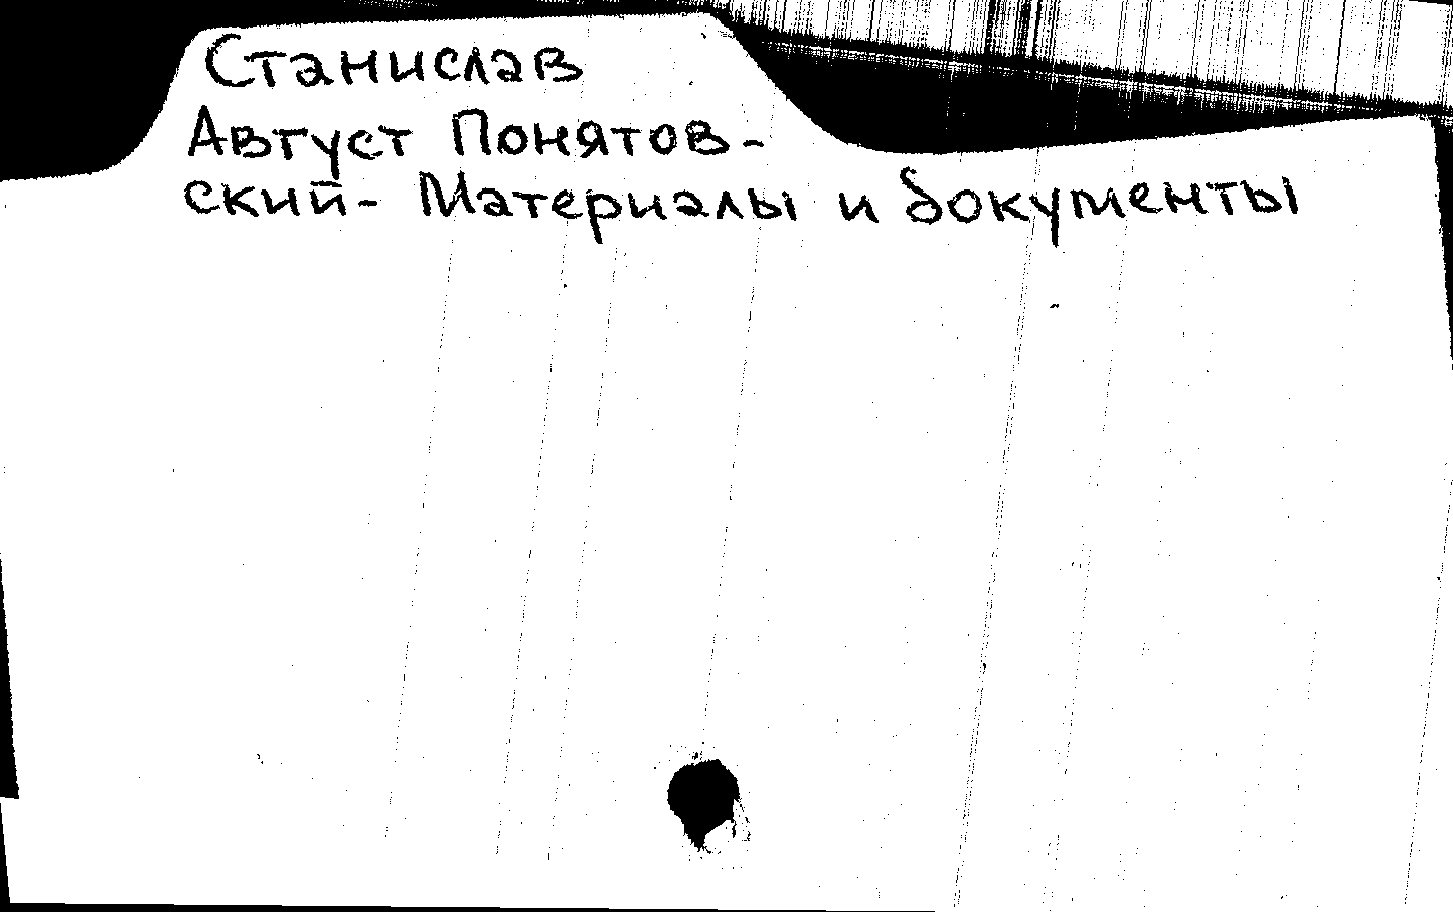 Станислав
Август Понятов-
ский- Материалы и документы